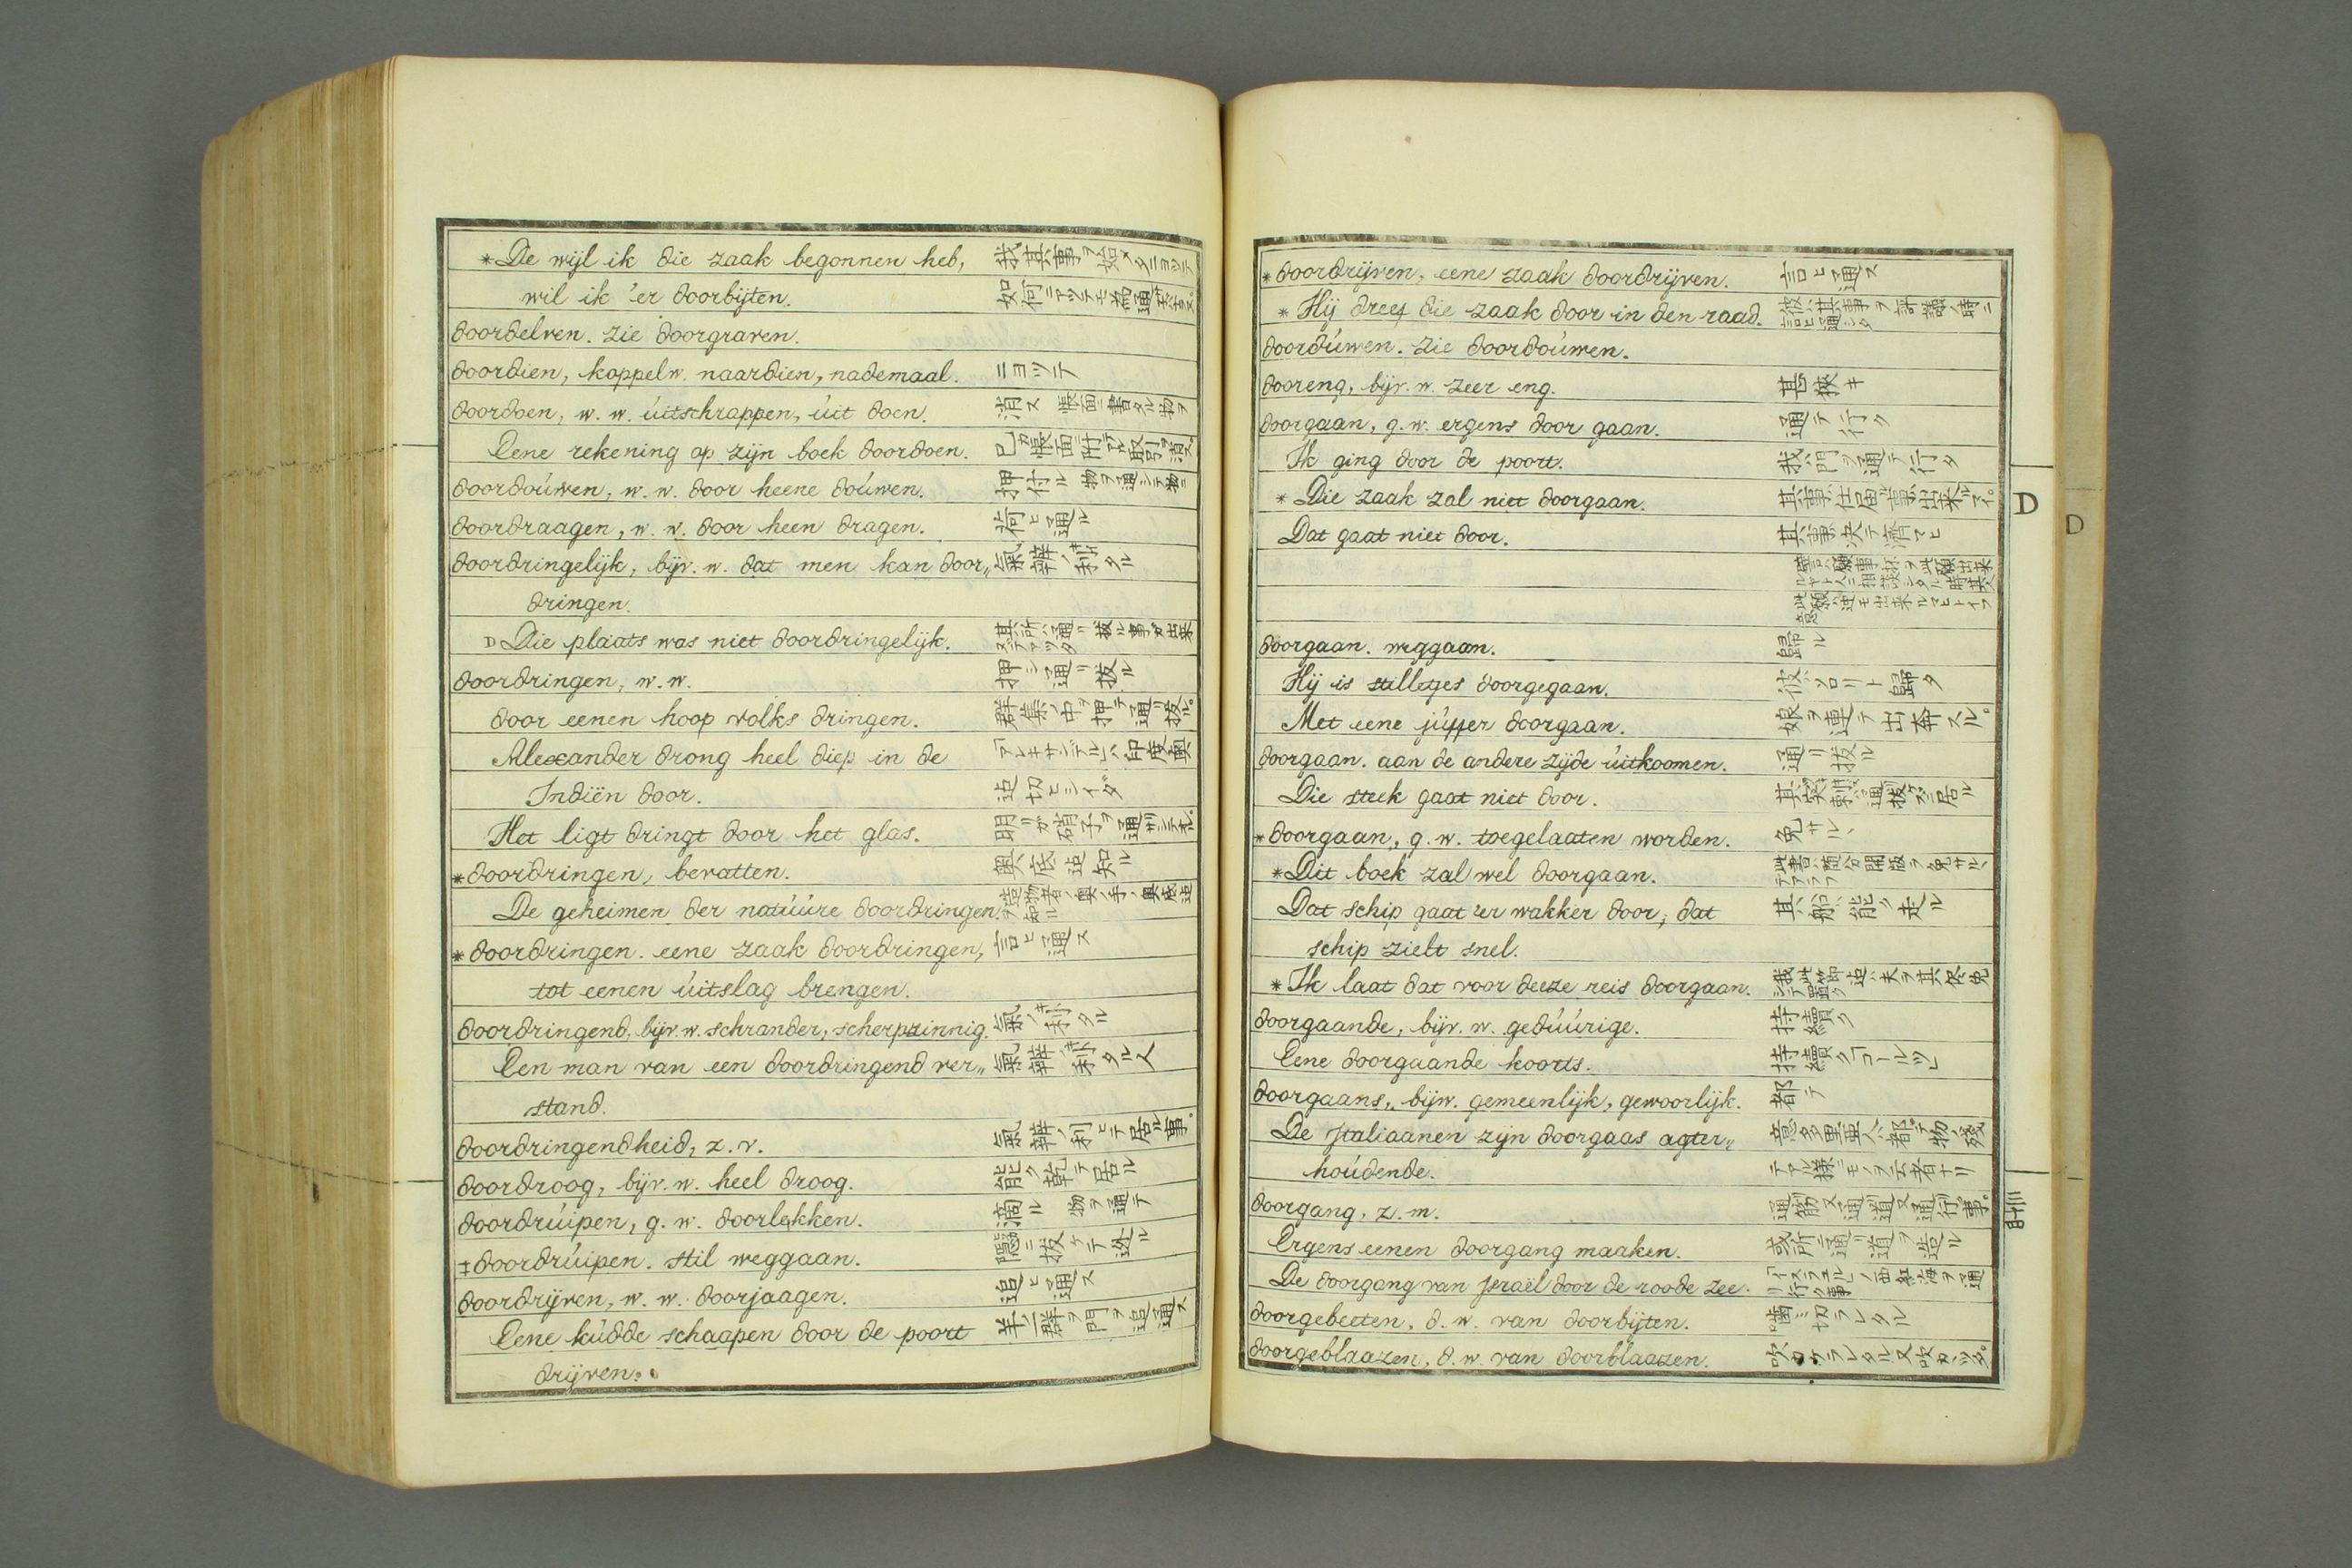 *De wijl ik die zaak begonnen heb, 我其事ヲ始メタニヨッテ
wil ik 'er doorbijten.
doordelven. zie doorgraven.
doordien, koppelw. naardien, nademaal. ニヨツテ
doordoen, w. w. úitschrappen, úit doen. 消ス 帳面ニ書タル物ヲ
Eene rekening op zijn boek doordoen.
doordoúwen, w. w. door heene doúwen. 押付ル 物ヲ通シテ物ニ
doordraagen, w. w. door heen dragen. 荷ヒ通ル
doordringelijk, bijv. w. dat men kan door„ 氣辯ノ利タル
dringen.
D Die plaats was niet doordringelijk. 其所ハ通リ抜ル事ガ出来ズデアツタ
doordringen, w. w. 押シ通リ抜ル
door eenen hoop volks dringen. 群集ノ中ヲ押テ通リ抜ル。
Alexander drong heel diep in de 「アレキサンデル」ハ印度奥
Indiën door. 迄切ヒシイダ
Het ligt dringt door het glas. 明リガ硝子ヲ通
*doordringen, bevatten. 奥底迄知ル
De geheimen der natúúre doordringen. 造物者ノ奥ノ手ノ奥底迄ヲ知ル
*doordringen. eene zaak doordringen, 言ヒ通ス
tot eenen úitslag brengen.
doordringend, bijv. w. schrander, scherpzinnig. 氣ノ利タル
Een man van een doordringend ver„ 氣辯ノ利タル人
stand.
doordringendheid, z. v. 氣辯ノ利ヒテ居ル事。
doordroog, bijv. w. heel droog. 能ク乾テ居ル
doordrúipen, g. w. doorlekken. 滴ル 物ヲ通テ
‡doordrúipen. stil weggaan. 隱ニ抜ケテ迯ル
doordrijven, w. w. doorjaagen. 追ヒ通ス
Eene kúdde schaapen door de poort 羊一群ヲ門ヲ追通ス
drijven.
*doordrijven, eene zaak doordrijven. 言ヒ通ス
*Hij dreef die zaak door in den raad. 彼ハ其事ヲ評議ノ時ニ言ヒ通シタ
doordúwen. zie doordoúwen.
dooreng, bijv. w. zeer eng. 甚狹キ
doorgaan, g. w. ergens door gaan. 通テ行ク
Ik ging door de poort. 我門ヲ通テ行タ
*Die zaak zal niet doorgaan. 其事ハ仕届ル事ハ出来マイ。
Dat gaat niet door. 其ハ事決テ濟マヒ
doorgaan. weggaan. 歸ル
Hij is stilletjes doorgegaan. 彼ハソロリト歸タ
Met eene júffer doorgaan. 娘ヲ連テ出奔スル。
doorgaan. aan de andere zijde úitkoomen. 通リ抜ル
Die steek gaat niet door.
*doorgaan, g. w. toegelaaten worden. 免サル丶
*Dit boek zal wel doorgaan.
Dat schip gaat 'er wakker door, dat 其船ハ能ク走ル
schip zielt snel.
*Ik laat dat voor deeze reis doorgaan.
doorgaande, bijv. w. gedúúrige. 持續ク
Eene doorgaande koorts. 持續ク「コールツ」
doorgaans, bijw. gemeenlijk, gewoorlijk. 都テ
De Jtaliaanen zijn doorgaas agter„ 意多里亜人ハ都テ物ヲ殘
hoúdende. テアル様ニモノヲ云者ナリ
doorgang, z. m. 通筋又通道又通行事。
Ergens eenen doorgang maaken. 或所ニ通リ道ヲ造ル
De doorgang van Jsraël door de roode zee. 「イスラエル」ノ西紅海ヲ通リ行ク事
doorgebeeten, d. w. van doorbijten. 噛ミ切ラレタル
doorgeblaazen, d. w. van doorblaazen.
D
D